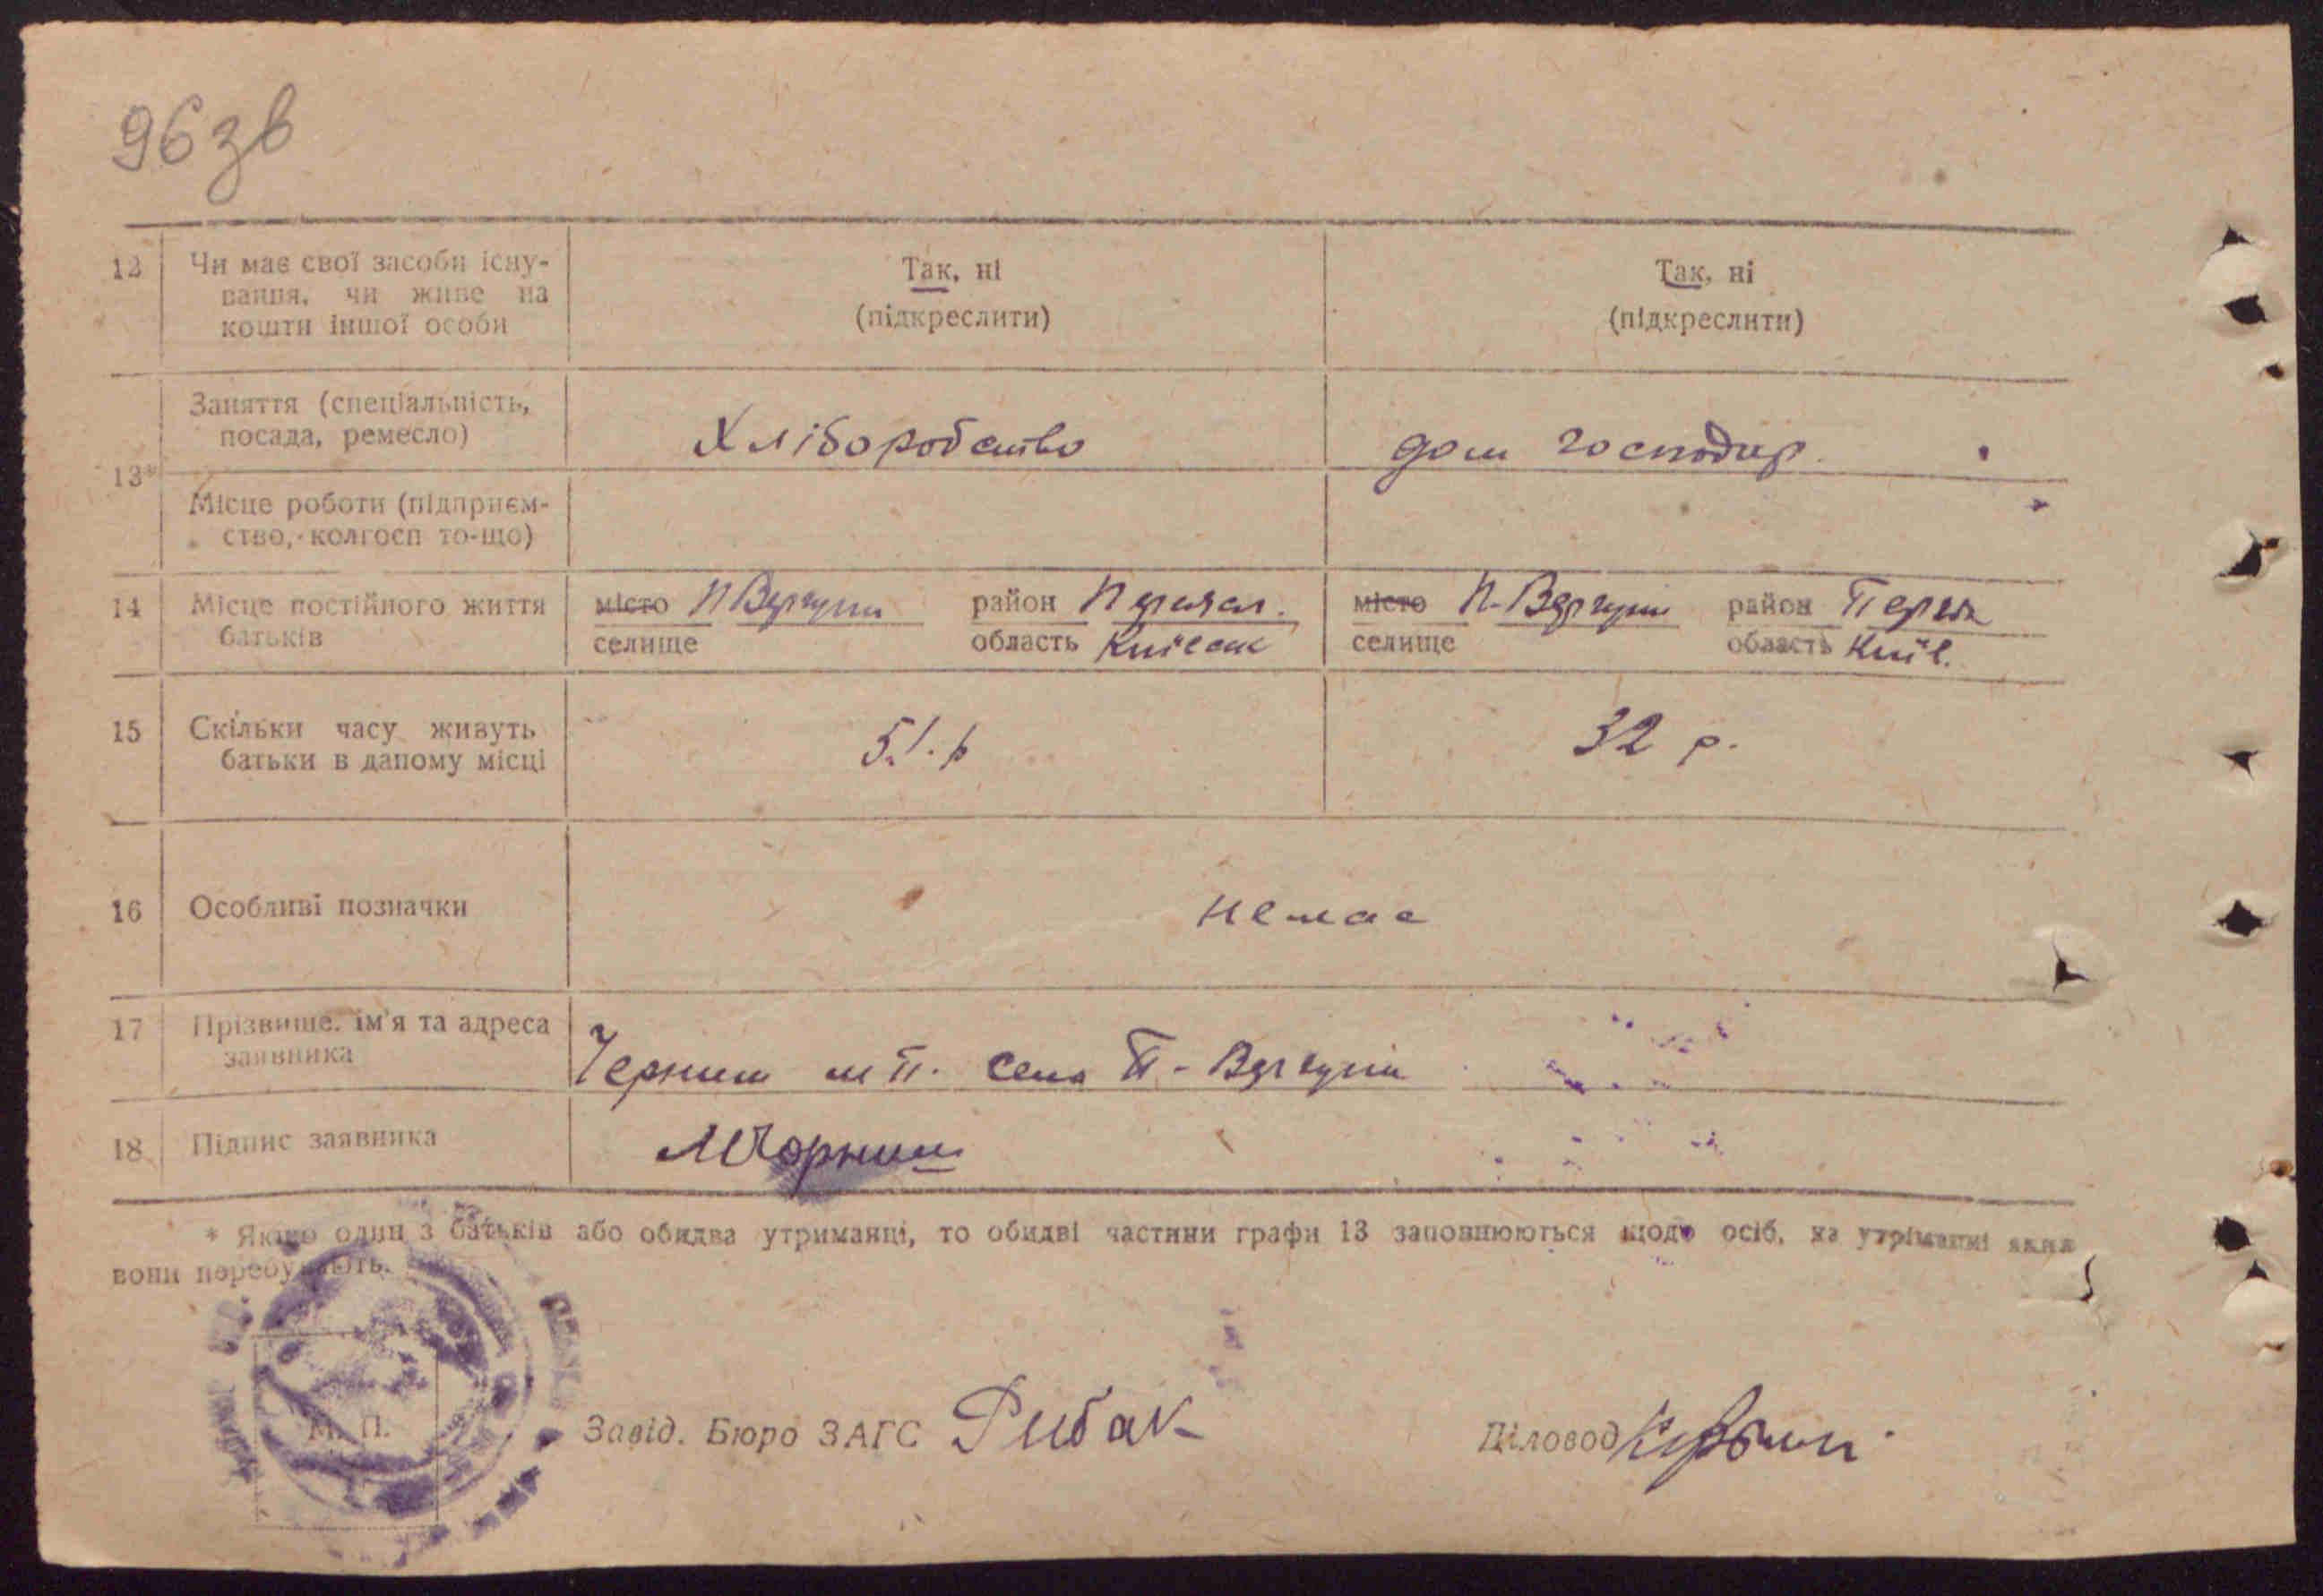 96зв
12 Чи має свої засоби існу- Так, ні Так, ні
вання, чи живе на (підкреслити) (підкреслити)
кошти іншої особи
Заняття (спеціальність, Хліборобство дом господар.
посада, ремесло)
13*
Місце роботи (підприєм-
ство, колгосп то-що)
14 Місце постійного життя місто П Вергуни район Переясл. місто П-Вергуни район Переяс
батьків селище область Київськ селище область Київ.
15 Скільки часу живуть 51.р 32 р.
батьки в даному місці
16 Особливі позначки немає
17 Прізвище, ім'я та адреса Черниш м П. село П-Вергуни
заявника
18 Підпис заявника МЧорниш
* Якщо один з батьків або обидва утриманці, то обидві частини графи 13 заповнюються щодо осіб, на утріманні яких
вони перебувають.
М. П.
Завід. Бюро ЗАГС Рибак Діловод